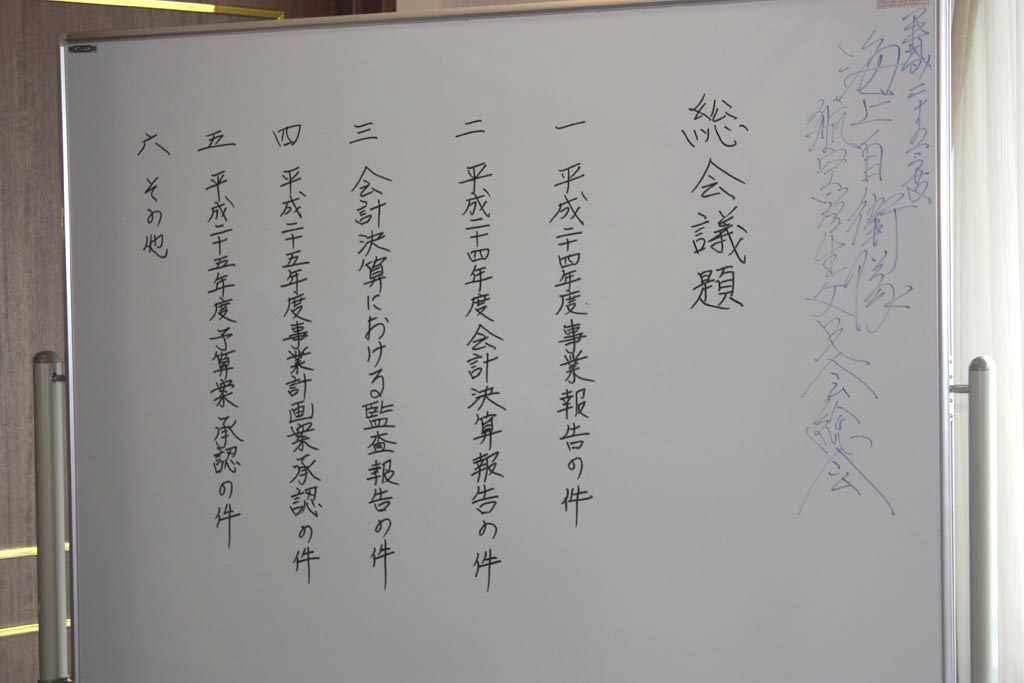 平成二十五年度
海上自衛隊
航空学生父兄会総会
総会議題
一 平成二十四年度事業報告の件
二 平成二十四年度会計決算報告の件
三 会計決算における監査報告の件
四 平成二十五年度事業計画案承認の件
五 平成二十五年度予算案承認の件
六 その他